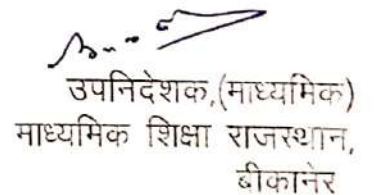 उपनिदेशक,(माध्यमिक)
माध्यमिक शिक्षा राजस्थान,
बीकानेर